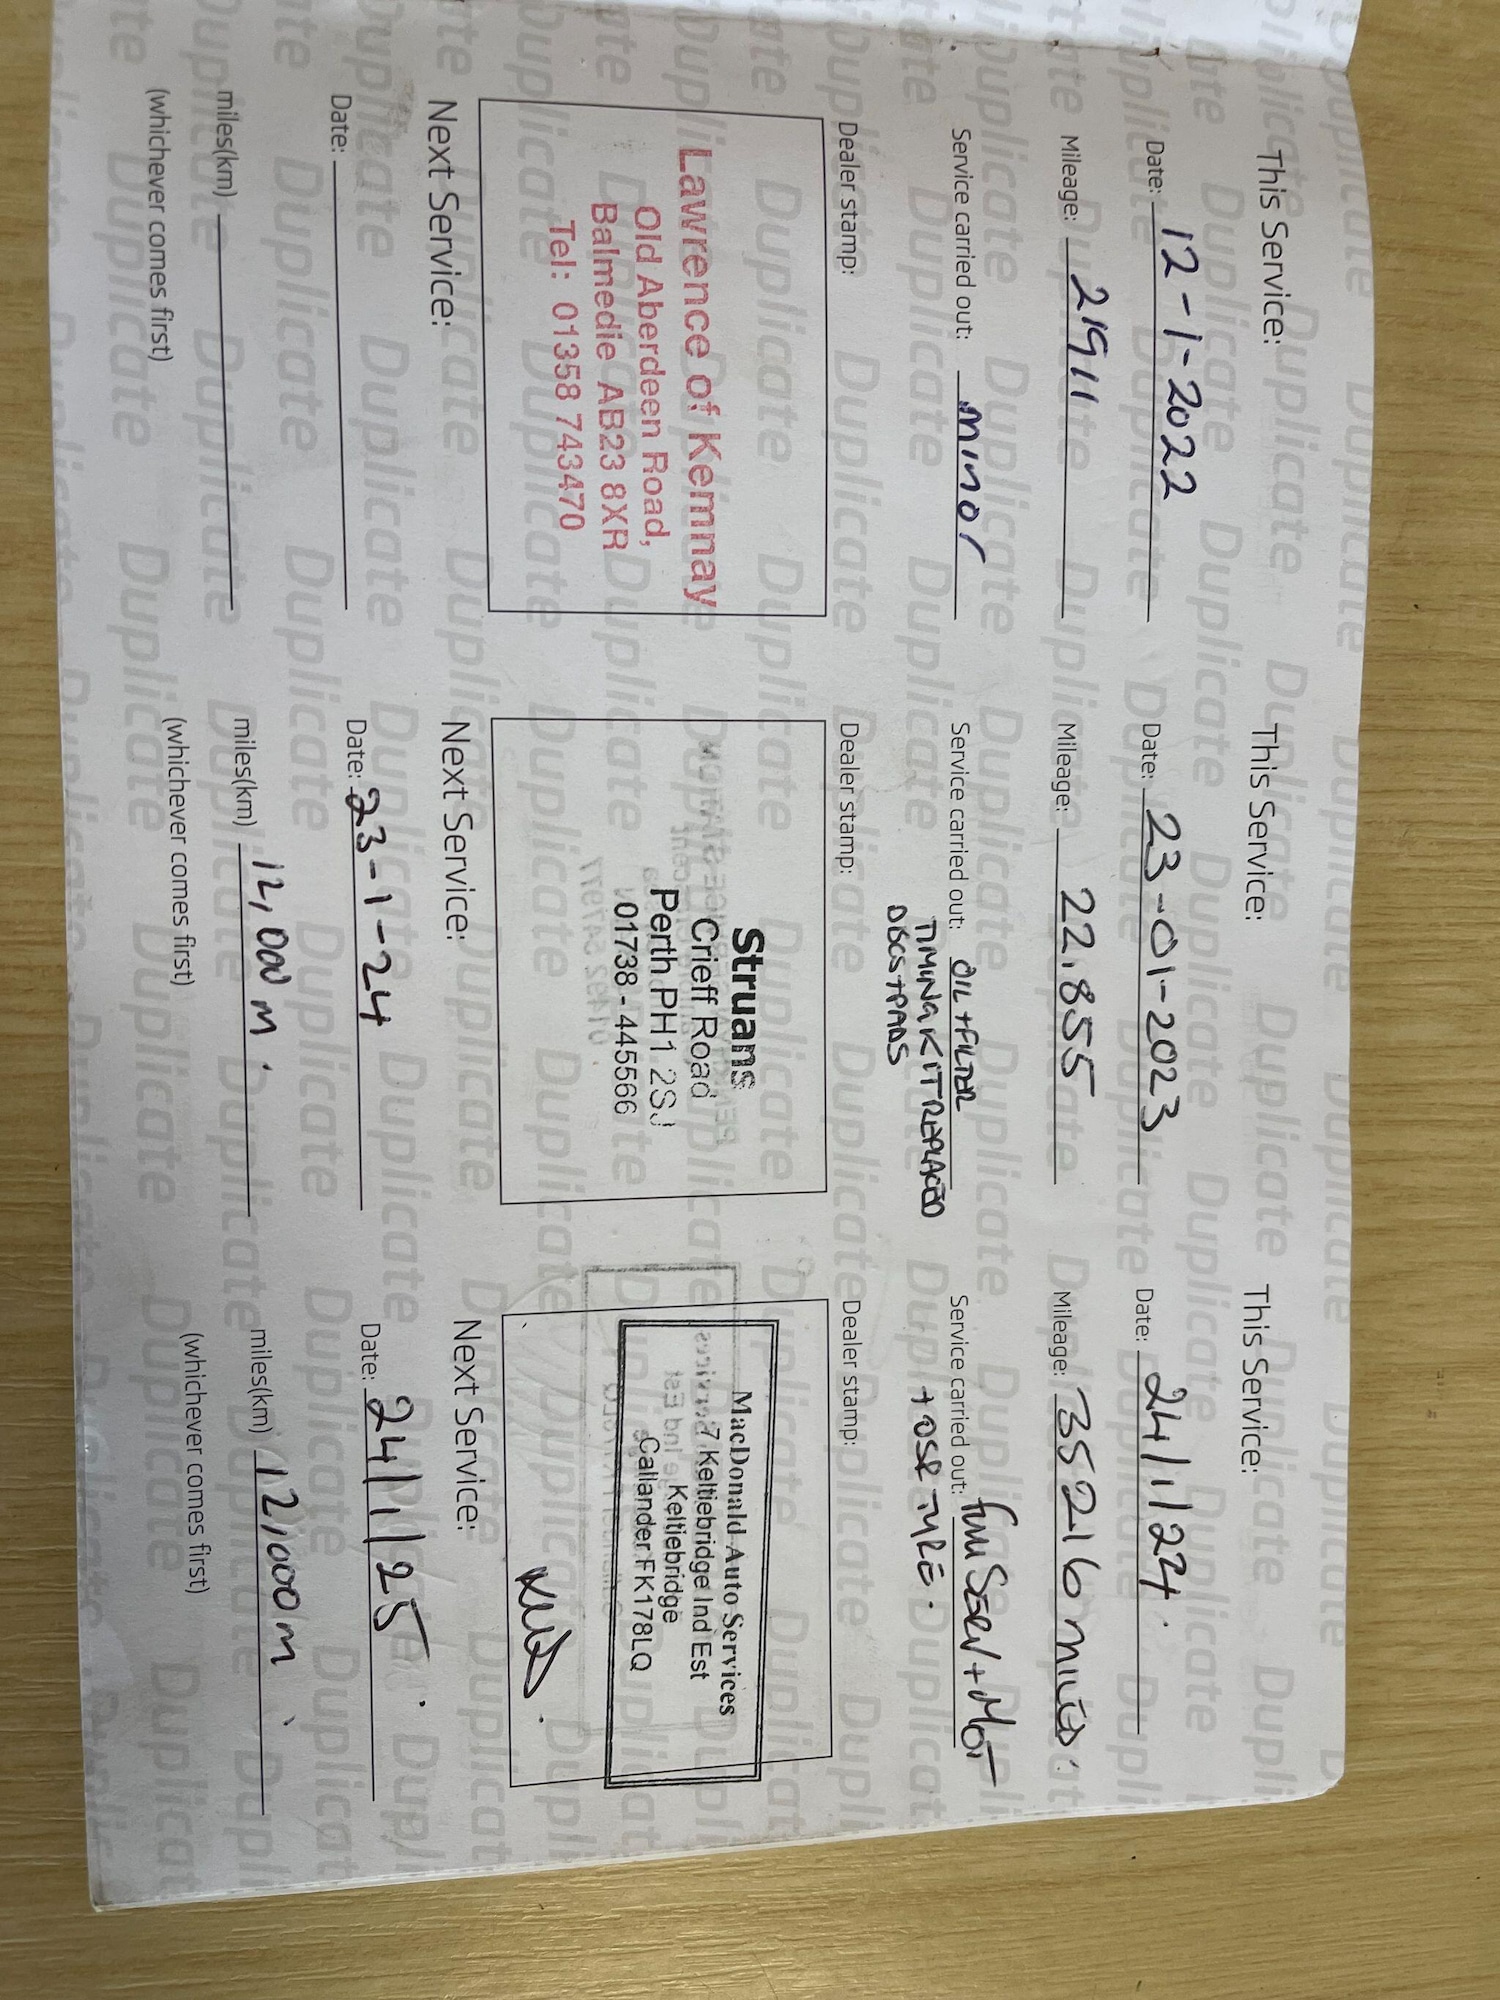 This Service:
Date: 12-1-2022
Mileage: 21911
Service carried out: minor
Dealer stamp:
Lawrence of Kemnay
Old Aberdeen Road,
Balmedie AB23 8XR
Tel: 01358 743470
Next Service:
Date:
miles(km)
(whichever comes first)
This Service:
Date: 23-01-2023
Mileage: 22.855
Service carried out: OIL + FILTER
TIMING KIT REPLACED
DISCS + PADS
Dealer stamp:
Struans
Crieff Road
Perth PH1 2SJ
01738 - 445566
Next Service:
Date: 23-1-24
miles(km) 12,000 m.
(whichever comes first)
This Service:
Date: 24/1/24.
Mileage: 35216 miles.
Service carried out: Full Serv + MOT
+ OSR TYRE.
Dealer stamp:
MacDonald Auto Services
7 Keltiebridge Ind Est
Keltiebridge
Callander FK178LQ
Next Service:
Date: 24/1/25.
miles(km) 12,000m
(whichever comes first)
Duplicate Duplicate Duplicate Duplicate